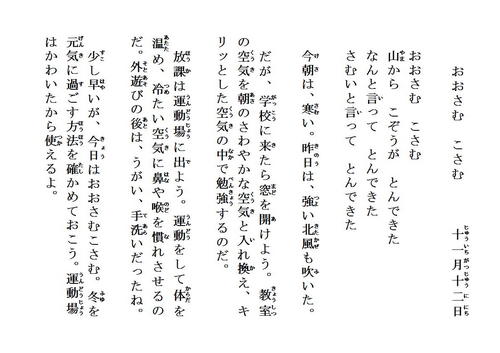 おおさむ　こさむ
十一月十二日
おおさむ　こさむ
山から　こぞうが　とんできた
なんと言って　とんできた
さむいと言って　とんできた
今朝は、寒い。昨日は、強い北風も吹いた。
だが、学校に来たら窓を開けよう。教室
の空気を朝のさわやかな空気と入れ換え、キ
リッとした空気の中で勉強するのだ。
放課は運動場に出よう。運動をして体を
温め、冷たい空気に鼻や喉を慣れさせるの
だ。外遊びの後は、うがい、手洗いだったね。
少し早いが、今日はおおさむこさむ。冬を
元気に過ごす方法を確かめておこう。運動場
はかわいたから使えるよ。